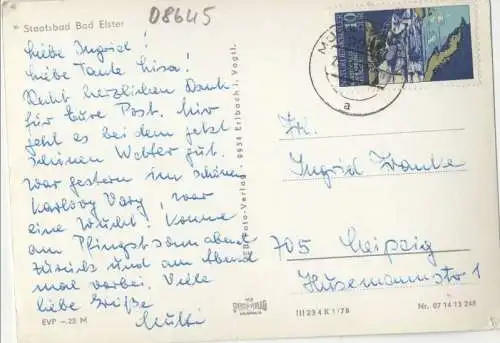 08645
Staatsbad Bad Elster
Liebe Ingrid!
Liebe Tante Lisa!
Recht herzlichen Dank
für Eure Post. Mir
geht es bei dem jetzt
schönen Wetter gut.
War gestern im schönen
Karlovy Vary, war
eine Wucht. Komme
am Pfingstsonnabend
zurück und am Abend
mal vorbei. Viele
liebe Grüße
Mutti
EVP –,25 M
Foto-Verlag · 9934 Erlbach i. Vogtl.
10
a
Frl.
Ingrid
705 Leipzig
Husemannstr 1
III 23 4 K 1/78
Nr. 07 14 13 248